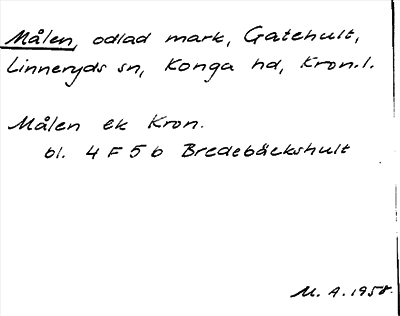 Målen, odlad mark, Gatehult,
Linneryds sn, Konga hd, Kron.l.
Målen ek Kron.
bl. 4 F 5 b Bredebäckshult
M. A. 1958.